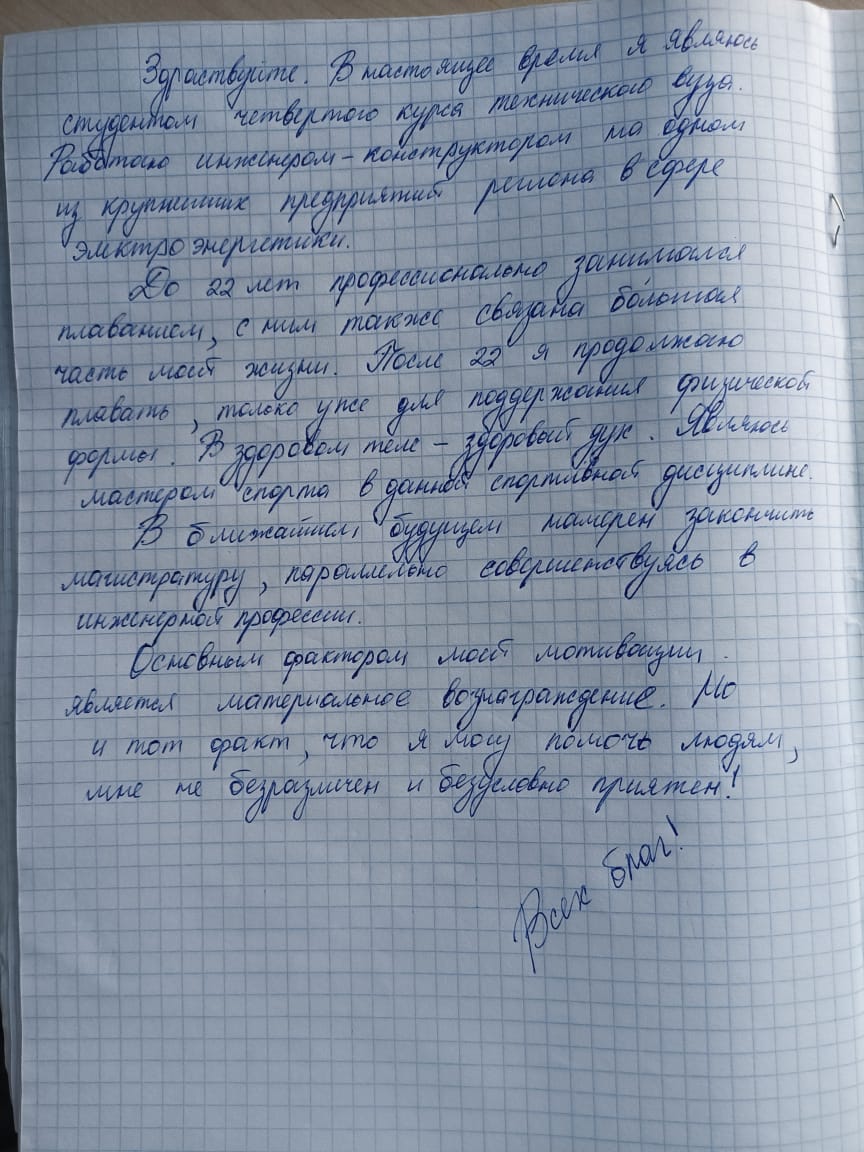 Здраствуйте. В настоящее время я являюсь
студентом четвертого курса технического вуза.
Работаю инженером-конструктором на одном
из крупнейших предприятий региона в сфере
электроэнергетики.
До 22 лет профессионально занимался
плаванием, с ним также связана бо́льшая
часть моей жизни. После 22 я продолжаю
плавать, только уже для поддержания физической
формы. В здоровом теле - здоровый дух. Являюсь
мастером спорта в данной спортивной дисциплине.
В ближайшем будущем намерен закончить
магистратуру, параллельно совершенствуясь в
инженерной профессии.
Основным фактором моей мотивации
является материальное вознаграждение. Но
и тот факт, что я могу помочь людям,
мне не безразличен и безусловно приятен!
Всех благ!